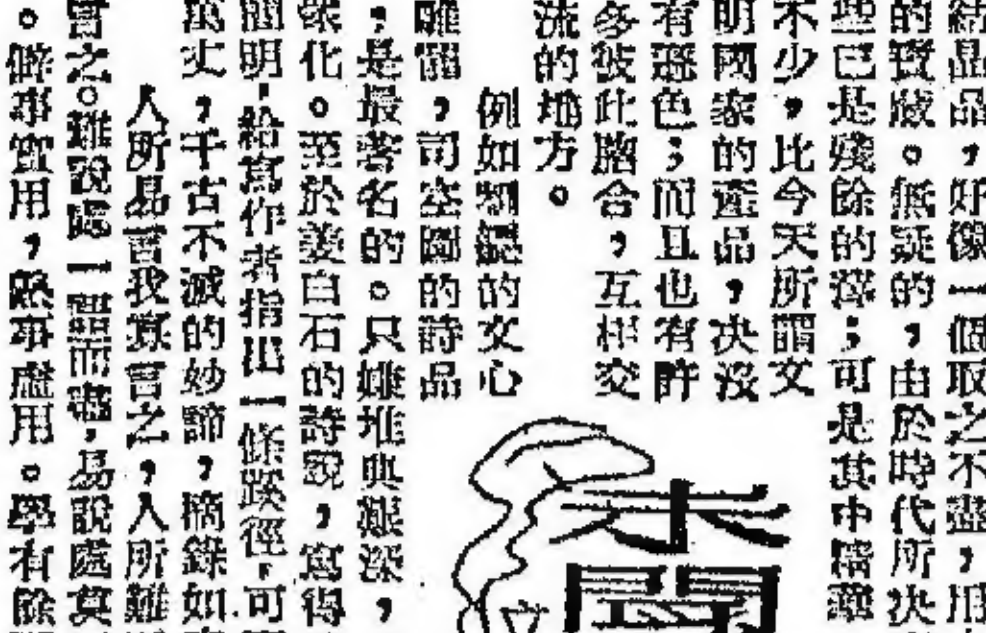 結晶品，好像一個取之不盡，用
的寶藏。無疑的，由於時代所決
些已是殘餘的渣滓；可是其中精華
不少，比今天所謂文
明國家的產品，决沒
有遜色；而且也有許
多彼此脗合，互相交
流的地方。
例如劉勰的文心
雕龍，司空圖的詩品
，是最著名的。只嫌堆典艱深，
化。至於姜白石的詩說，寫得
簡明，給寫作者指出一條蹊徑，可
萬丈，千古不滅的妙諦，摘錄如
人所易言我寡言之，人所難
言之。難說處一語而盡，易說處莫
。僻事實用，熟事虛用。學有餘